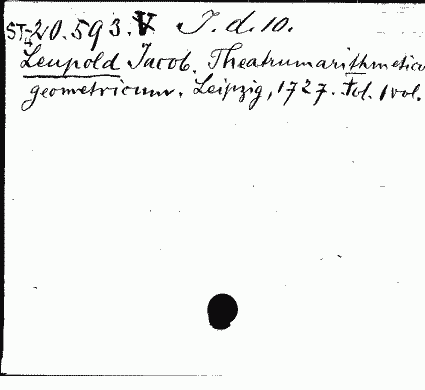 ST-20.593.V J.d.10.
Leupold Jacob. Theatrum arithmetico
geometricum. Leipzig, 1727. Fol. 1 vol.